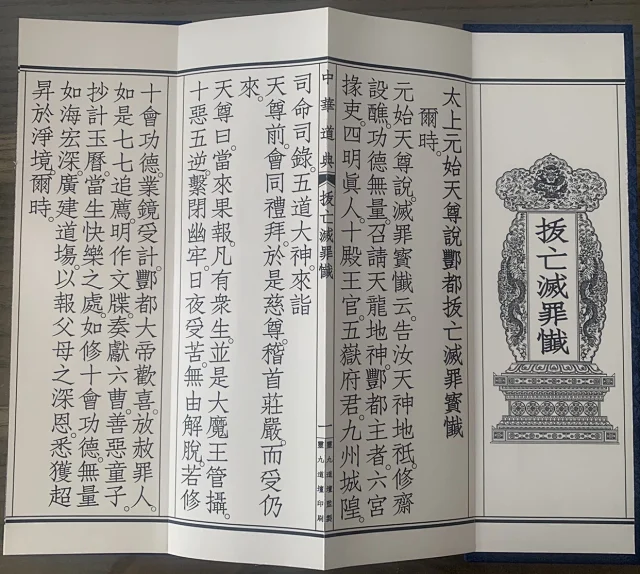 拔亡滅罪懺
太上元始天尊說酆都拔亡滅罪寳懺
爾時。
元始天尊。說滅罪寳懺云。告汝天神地祇。修齋
設醮。功德無量。召請天龍地神。酆都主者。六宮
掾吏。四明眞人。十殿王官。五嶽府君。九州城隍。
中華道典
拔亡滅罪懺
一
靈九道壇監製
靈九道壇印刷
司命司錄。五道大神。來詣
天尊前。會同禮拜。於是慈尊。稽首莊嚴。而受仍
來。
天尊曰。當來果報。凡有衆生。並是大魔王管攝。
十惡五逆。繫閉幽牢。日夜受苦。無由解脫。若修
十會功德。業鏡受計。酆都大帝歡喜。放赦罪人。
如是七七追薦。明作文牒。奏獻六曹。善惡童子。
抄計玉曆。當生快樂之處。如修十會功德。無量
如海宏深。廣建道塲。以報父母之深恩。悉獲超
昇於淨境。爾時。